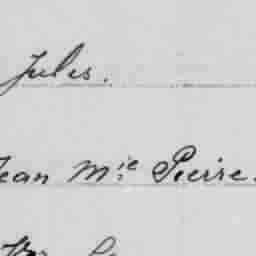 Jules.
Jean M.ie Pierre.